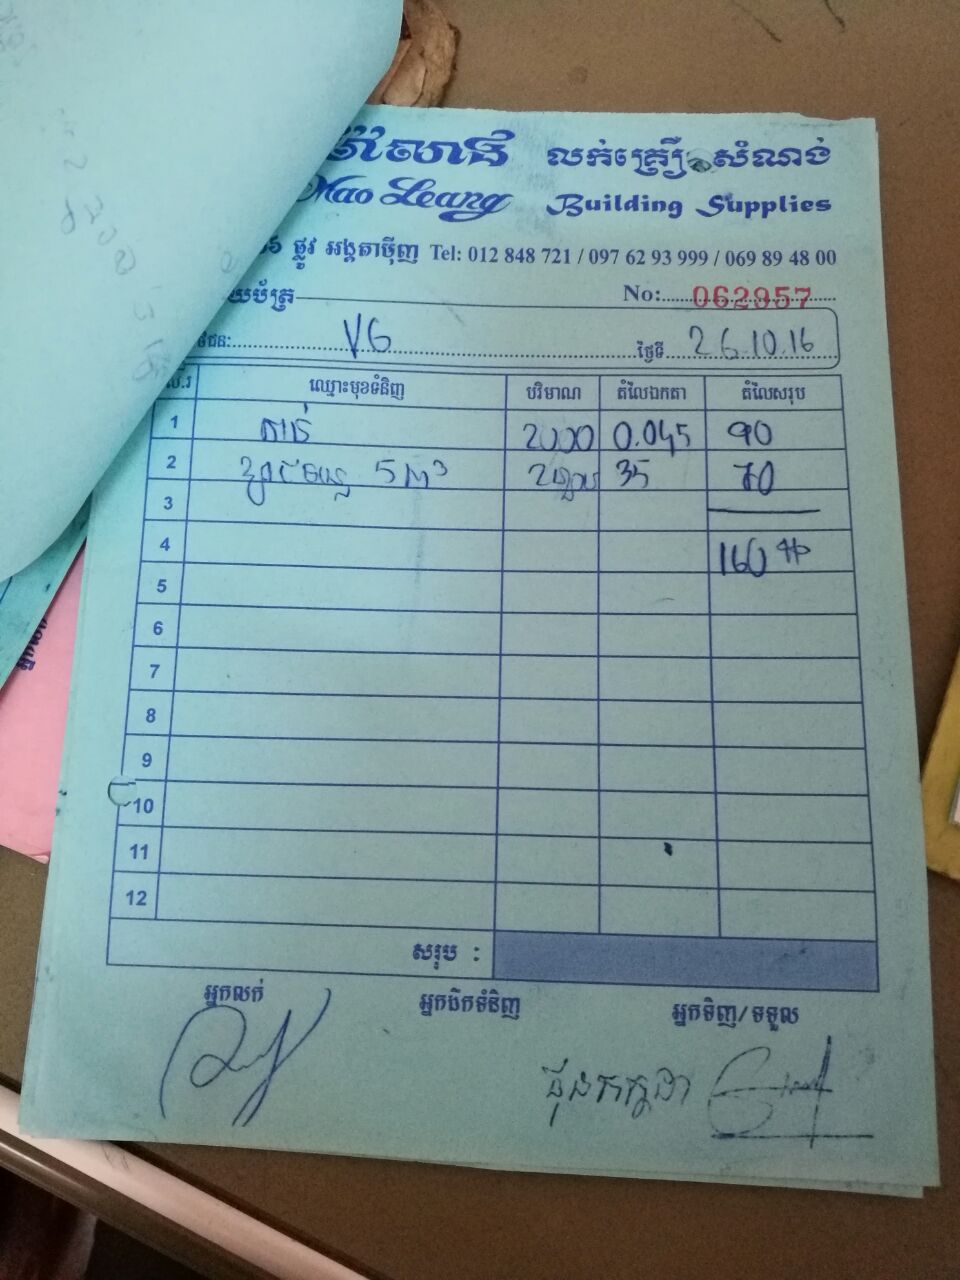 លក់គ្រឿងសំណង់
Mao Leang Building Supplies
ផ្លូវ អង្គតាម៉ិញ Tel: 012 848 721 / 097 62 93 999 / 069 89 48 00
No: 062957
VG ថ្ងៃទី 26.10.16
ល.រ ឈ្មោះមុខទំនិញ បរិមាណ តំលៃឯកតា តំលៃសរុប
1 2000 0.045 90
2 5m³ 35 70
3
4 160
5
6
7
8
9
10
11
12
សរុប :
អ្នកលក់ អ្នកដឹកទំនិញ អ្នកទិញ/ទទួល